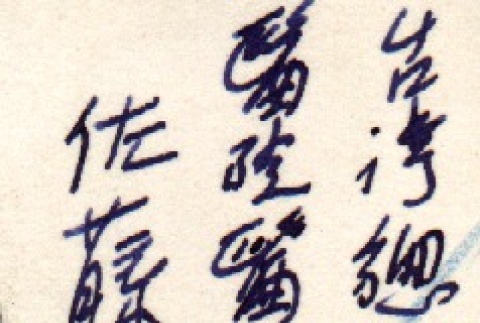 台湾總
醫院醫
佐藤